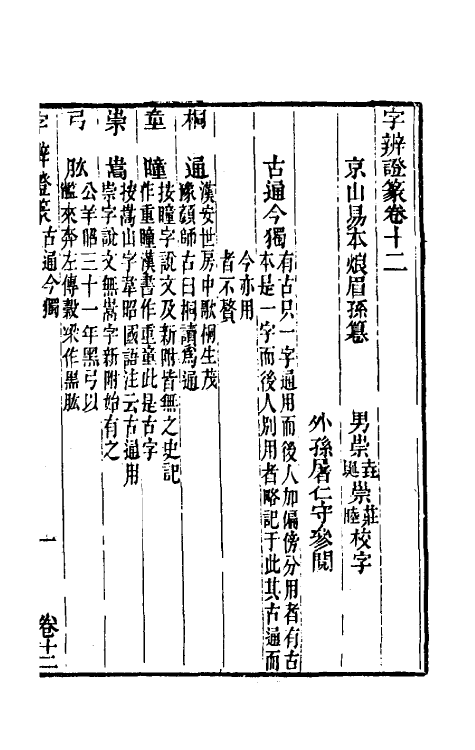 字辨證篆卷十二
京山易本烺眉孫纂
男崇垚崇莊校字
與崇䧺
外孫屠仁守參閱
古通今獨
有古只一字通用而後人加偏傍分用者有古
本是一字而後人別用者略記于此其古通而
今亦用
者不贅
桐 通
漢安世房中歌桐生茂
豫顔師古曰桐讀爲通
童 瞳
按瞳字說文及新附皆無之史記
作重瞳漢書作重童此是古字
崇 嵩
按嵩山字韋昭國語注云古通用
崇字說文無嵩字新附始有之
弓 肱
公羊昭三十一年黑弓以
濫來奔左傳穀梁作黑肱
字辨證篆 古通今獨
一
卷十二